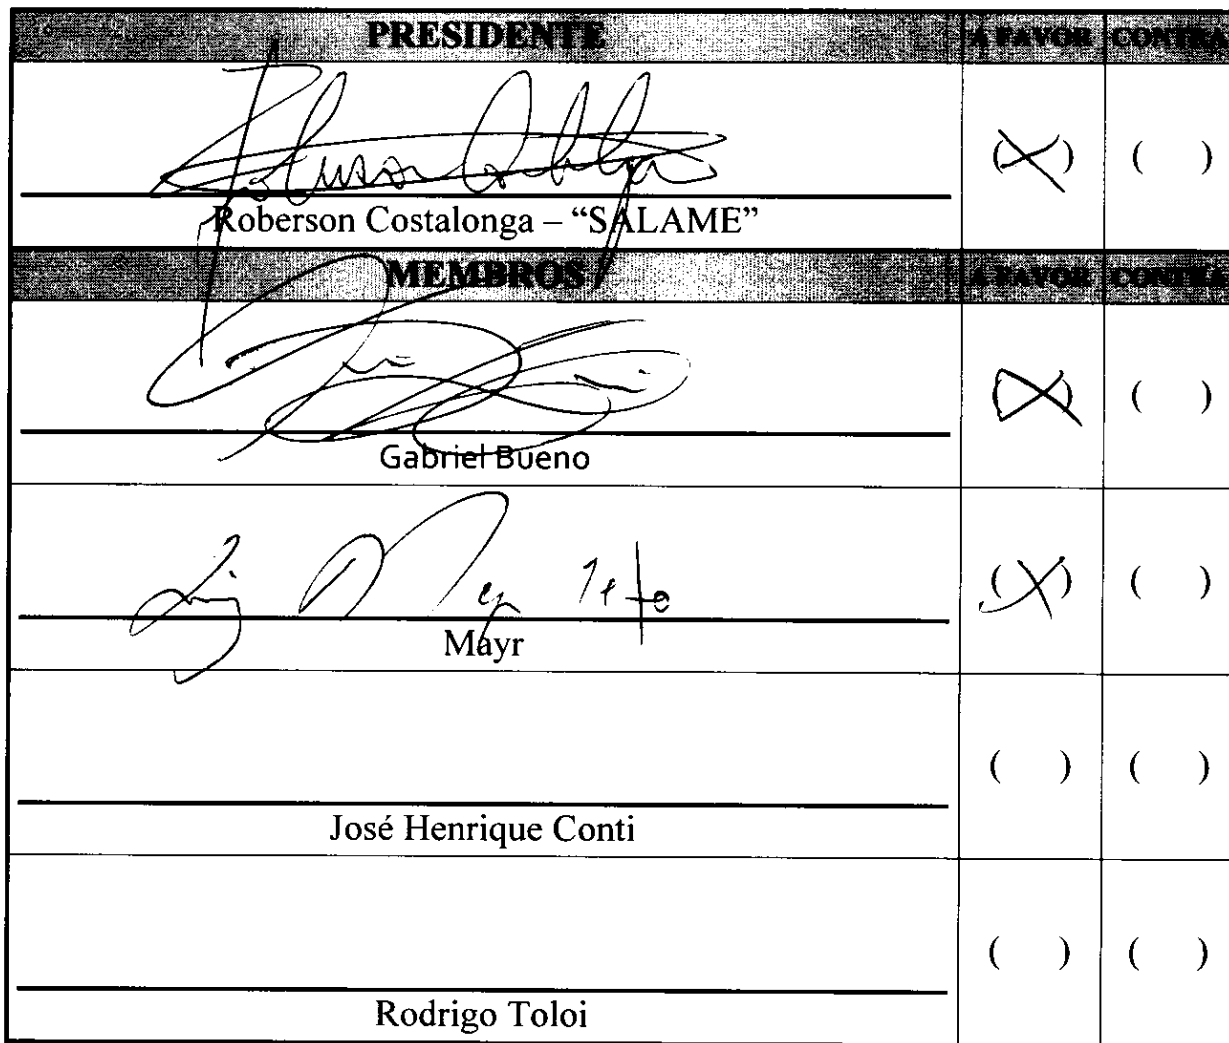 PRESIDENTE A FAVOR CONTRA
(X) ( )
Roberson Costalonga – “SALAME”
MEMBROS A FAVOR CONTRA
(X) ( )
Gabriel Bueno
(X) ( )
Mayr
( ) ( )
José Henrique Conti
( ) ( )
Rodrigo Toloi